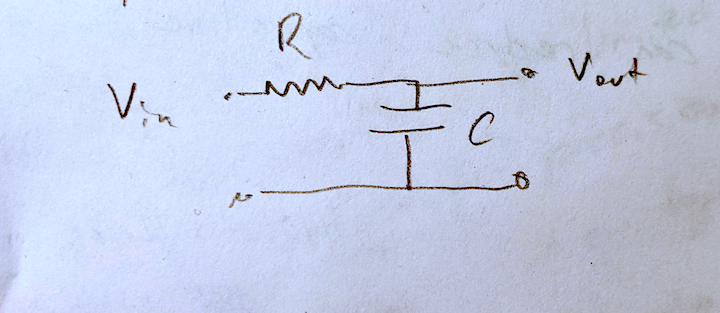 R
Vin
Vout
C